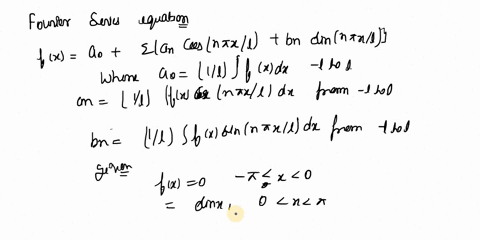 Fourier Series equation
f(x) = a0 + Σ{an cos(nπx/l) + bn sin(nπx/l)}
where a0 = (1/l) ∫ f(x)dx -l to l
an = (1/l) (f(x) cos (nπx/l) dx from -l to l
bn = (1/l) ∫ f(x) sin(nπx/l) dx from -l to l
given
f(x) = 0 -π ≤ x < 0
= sinx, 0 < x < π